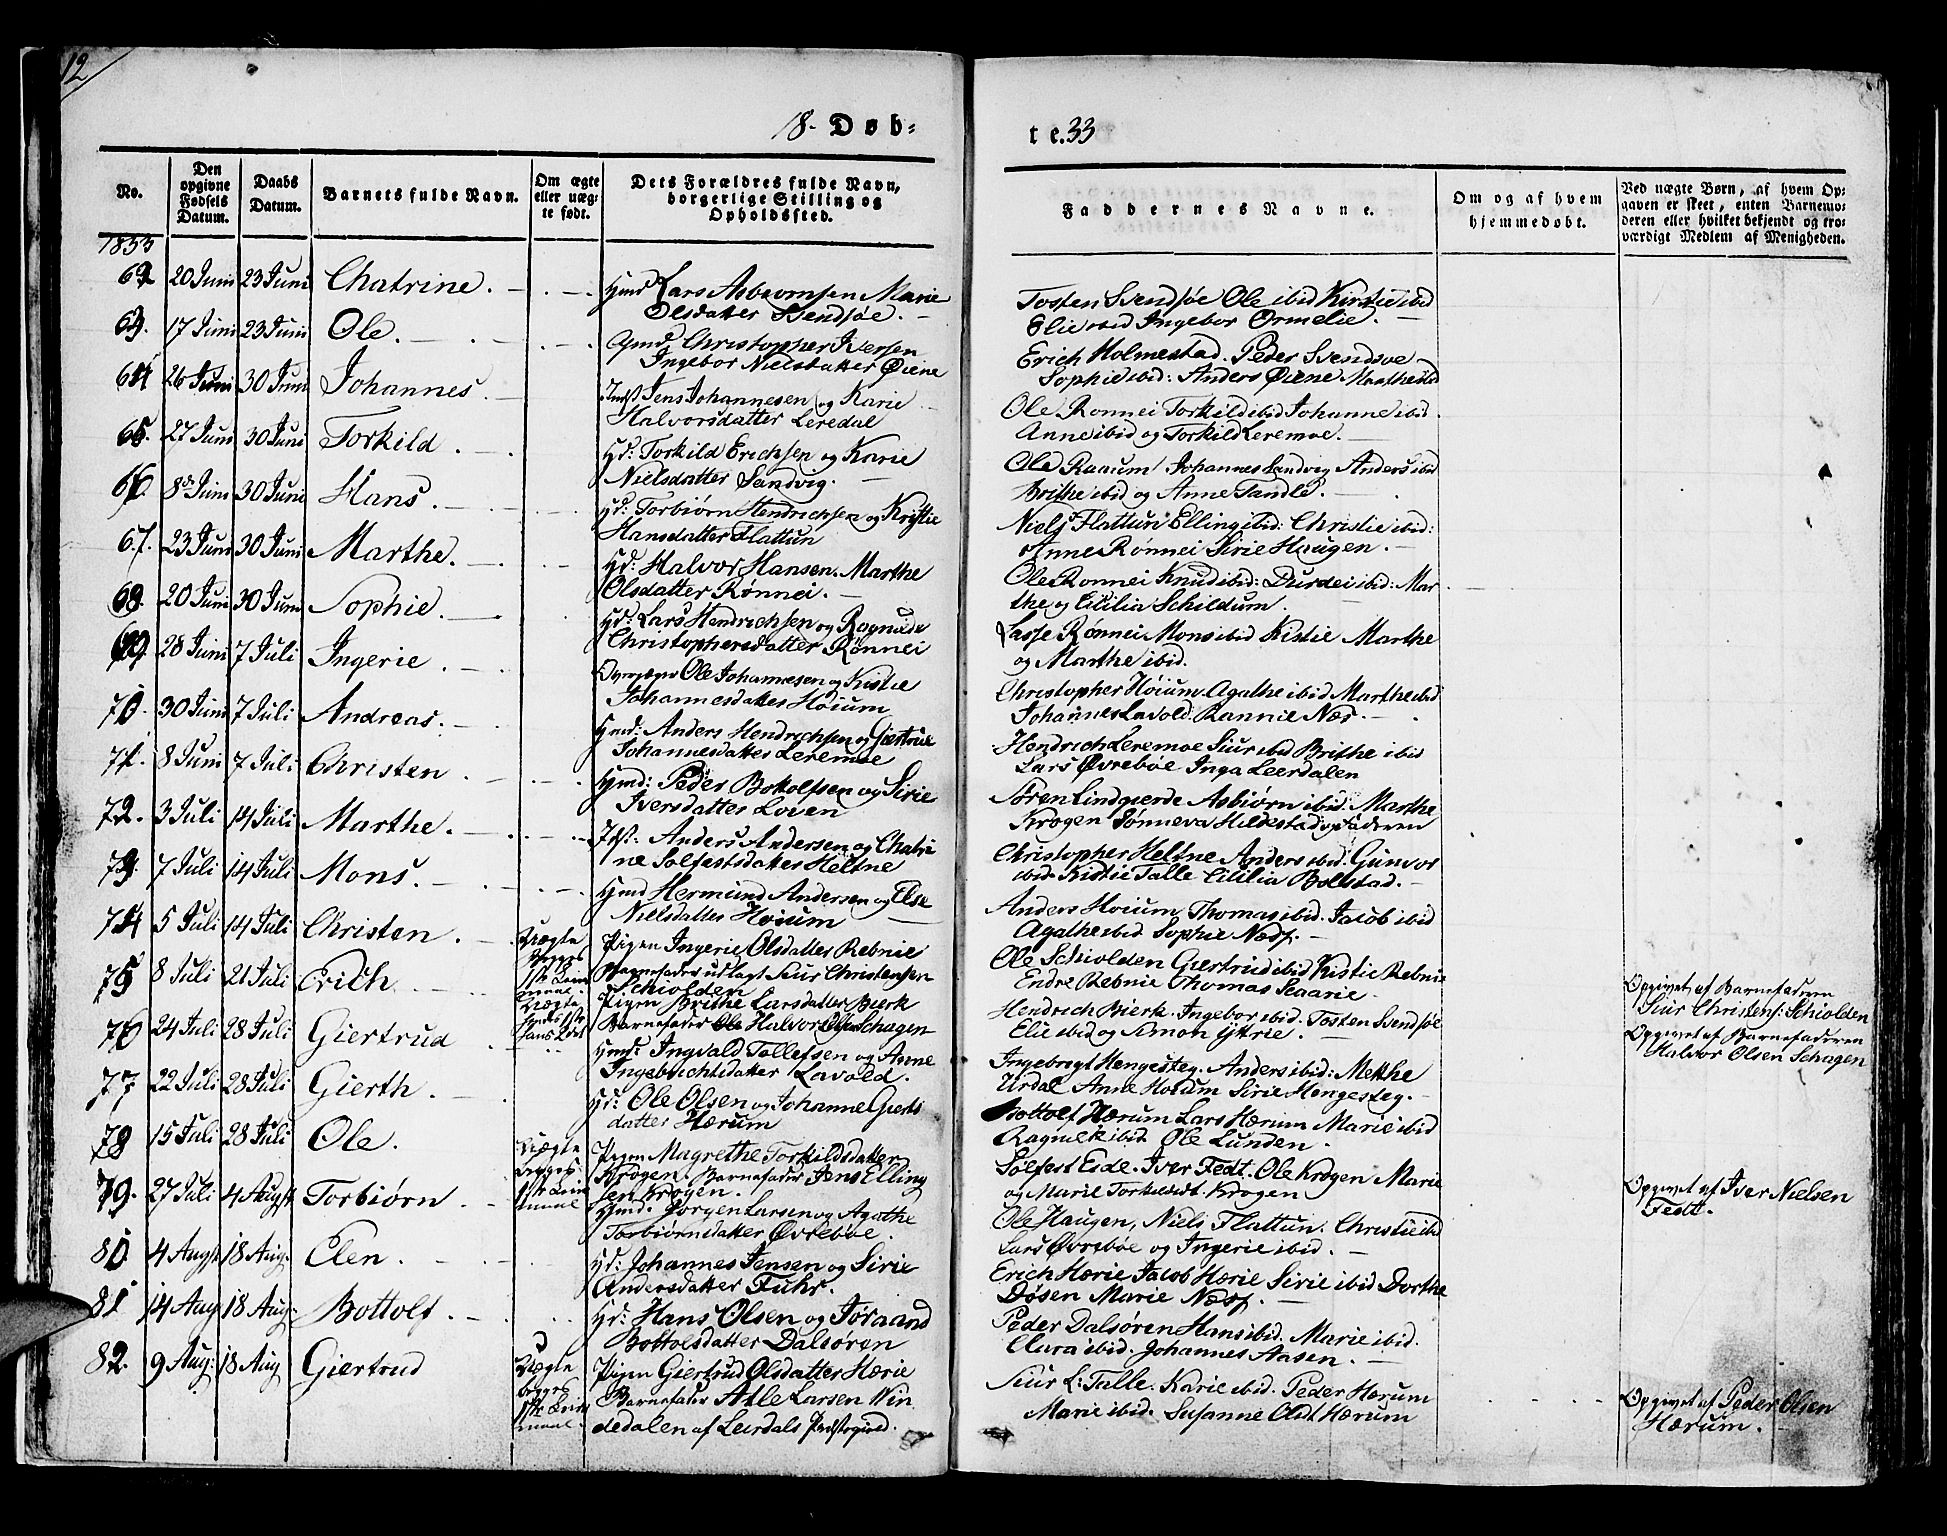 12
18- Døb-
te.33
No.
Den opgivne Fødsels Datum.
Daabs Datum.
Barnets fulde Navn.
Om ægte eller uægte født.
Dets Forældres fulde Navn, borgerlige Stilling og Opholdssted.
Faddernes Navne.
Om og af hvem hjemmedøbt.
Ved uægte Børn, af hvem Opgaven er skeet, enten Barnemoderen eller hvilket bekjendt og troværdigt Medlem af Menigheden.
1833
62 20 Juni 23 Juni Chatrine.
Hmd Lars Asbiornsen Marie
Olsdatter Svendsøe.
Tosten Svendsøe Ole ibid Kirstie ibid
Elie ibid Ingebor Ormelie.
63. 17 Juni 23 Juni Ole.
Hmd Christopher Iversen
Ingebor Nielsdatter Øiene
Erich Holmestad. Peder Svendsøe
Sophie ibid: Anders Øiene Marthe ibid
64 26 Juni 30 Juni Johannes.
Indst Jens Johannesen og Karie
Halvorsdatter Leredal
Ole Rønnei Torkild ibid Johanne ibid.
Anne ibid og Torkild Leremoe.
65. 27 Juni 30 Juni Torkild.
Hd: Torkild Erichsen og Karie
Nielsdatter Sandvig.
Ole Raaum Johannes Sandvig Anders ibid
Brithe ibid og Anne Tandle.
66. 8de Juni 30 Juni Hans.
Hd: Torbiørn Hendrichsen og Kristie
Hansdatter Flattun
Niels Flattun Elling ibid: Christie ibid:
Anne Rønnei Sirie Haugen.
67. 23 Juni 30 Juni Marthe.
Hd: Halvor Hansen. Marthe
Olsdatter Rønnei.
Ole Rønnei Knud ibid: Durdei ibid: Mar
the og Cicilia Schildum.
68. 20 Juni 30 Juni Sophie.
Hd: Lars Hendrichsen og Ragnilde
Christophersdatter Rønnei
Lasse Rønnei Mons ibid Kistie Marthe
og Marthe ibid.
69 28 Juni 7 Juli Ingerie.
Ole Johannesen og Kistie
Johannesdatter Høium
Christopher Høium. Agathe ibid Marthe ibid
Johannes Lavold. Rannie Næs.
70. 30 Juni 7 Juli Andreas.
Hmd: Anders Hendrichsen og Giertrue
Johannesdatter Leremoe
Hendrich Leremoe Siur ibid Brithe ibid
Lars Øvrebøe Inga Leerdalen
71. 8 Juni 7 Juli Christen
Hmd: Peder Bottolfsen og Sirie
Iversdatter Loven
Søren Lindgierde Asbiørn ibid: Marthe
Krogen Sønneva Hildestad og Faderen
72. 3 Juli 14 Juli Marthe.
Idst: Anders Andersen og Chatri
ne Solfestsdatter Heltne
Christopher Heltne Anders ibid: Gunvor
ibid: Kistie Talle Cicilia Bolstad.
73. 7 Juli 14 Juli Mons.
Hmd Hermund Andersen og Else
Nielsdatter Høium
Anders Høium Thomas ibid. Jacob ibid
Agathe ibid Sophie Næss.
74 5 Juli 14 Juli Christen.
Uægte Begges 1ste Leiermaal.
Pigen Ingerie Olsdatter Rebnie
Barnefader udlagt Siur Christensen
Schiolden
Ole Schiolden Giertrud ibid Kistie Rebnie
Endre Rebnie Thomas Scaarie.
Opgivet af Barnefaderen
Siur Christens: Schiolden
75 8 Juli 21 Juli Erich.
Uægte
Pigen Brithe Larsdatter Bierk
Barnefader Ole Halvor Olsen Schagen
Hendrich Bierk. Ingebor ibid. Tosten Svendsøe
Elie ibid og Simon Yttrie.
Opgivet af Barnefaderen
Halvor Olsen Schagen
76 24 Juli 28 Juli Giertrud
Hmd: Ingvald Tollefsen og Anne
Ingebrichtsdatter Lavold.
Ingebregt Hengesteg. Anders ibid: Mekthe
Urdal Anne Høium Sirie Hengesteg.
77 22 Juli 28 Juli Gierth.
Hd: Ole Olsen og Johanne Gierts
datter Hærum
Bottolf Hærum Lars Hærum Marie ibid
Ragnilde ibid. Ole Lunden.
78 15 Juli 28 Juli Ole.
Uægte Begges 1ste Leiermaal
Pigen Magrethe Torkildsdatter
Krogen. Barnefader Jens Elling
sen Krogen.
Solfest Eide. Iver Fedt. Ole Krogen Marie
og Marie Torkelsdt. Krogen
Opgivet af Iver Nielsen
Fedt.
79. 27 Juli 4 Augst Torbiørn
Hmd: Jørgen Larsen og Agathe
Torbiørnsdatter Øvrebøe.
Ole Haugen, Niels Flattun. Christie ibid
Lars Øvrebøe og Ingerie ibid.
80 4 Augst 18 Aug. Elen.
Hd: Johannes Jensen og Sirie
Andersdatter Fuhr.
Erich Hærie Jacob Hærie Sirie ibid Dorthe
Døsen Marie Næss.
81 14 Aug 18 Aug: Bottolf.
Hd: Hans Olsen og Jøraand
Bottolsdatter Dalsøren
Peder Dalsøren Hans ibid. Marie ibid.
Clara ibid. Johannes Aasen.
82. 9 Aug: 18 Aug Giertrud
Uægte begges 1ste Leiermaal.
Pigen Giertrud Olsdatter Hærie
Barnefader Atle Larsen Win
dedalen af Leirdals Præstegield.
Siur L: Talle. Karie ibid. Peder Hærum
Marie ibid. Susanne Olsdt Hærum
Opgivet af Peder Olsen
Hærum.